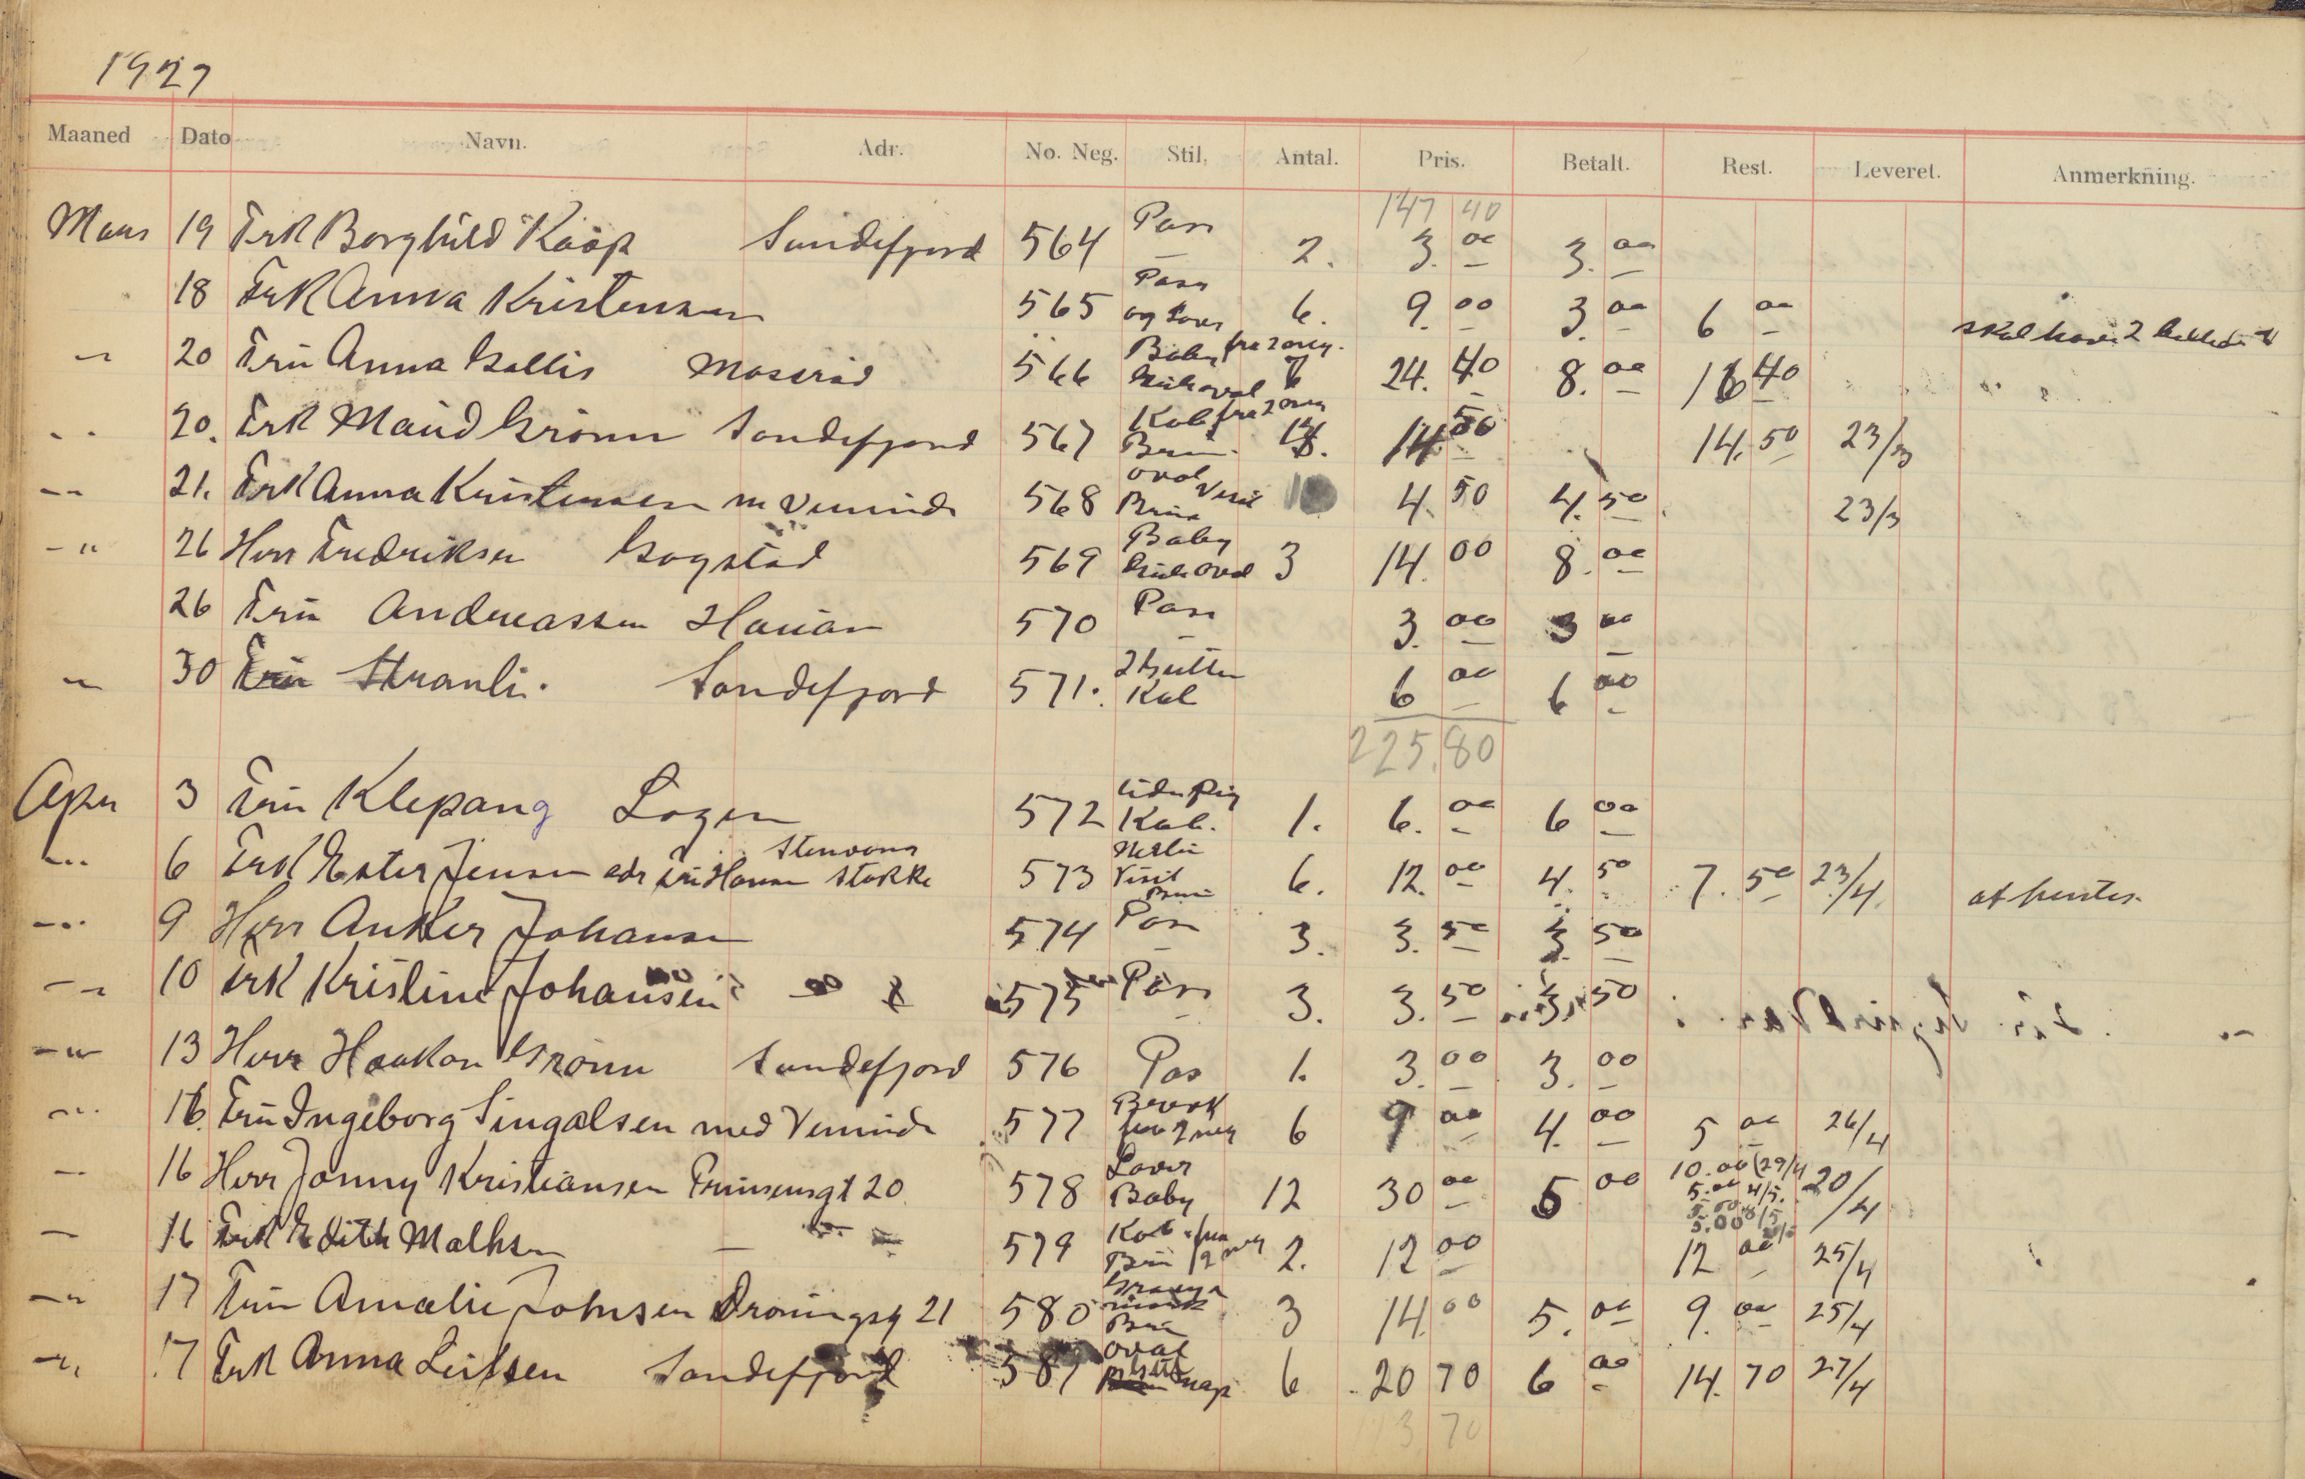 1927
Maaned Dato Navn. Adr. No. Neg. Stil. Antal. Pris. Betalt. Rest. Leveret. Anmerkning.
147 40
Mars 19 Frk Borghild Kaap Sandefjord 564 Pas 2. 3. 00 3. 00
18 Frk Anna Kristensen 565 Pass og 6. 9. 00 3. 00 6 00 skal have 2
-"- 20 Fru Anna Gallis Moserød 566 Baby fra 2 neg. 24. 40 8. 00 16 40
-"- 20. Frk Maud Grønn Sandefjord 567 Kab fra 2 neg Brun 14. 50 14. 50 23/3
-"- 21. Frk Anna Kristensen m Veninde 568 oval Visit Brun 4. 50 4. 50 23/3
-"- 26 Herr Fredriksen Gogstad 569 Baby oval 3 14. 00 8. 00
26 Fru Andreassen Hauan 570 Pass 3. 00 3 00
-"- 30 Fru Stranli. Sandefjord 571. 2 Gutter Kab 6 00 6 00
225.80
April 3 Fru Klepang Lagen 572 Kab. 1. 6. 00 6 00
-"- 6 Frk Ester Jensen adr Fru Hansen Stokke 573 Visit Brun 6. 12. 00 4. 50 7. 50 23/4 afhentes.
-"- 9 Herr Anker Johansen 574 Pas 3. 3. 50 3. 50
-"- 10 Frk Kristine Johansen 575 Pass 3. 3. 50 3. 50
-"- 13 Herr Haakon Grønn Sandefjord 576 Pas 1. 3. 00 3. 00
-"- 16. Fru Ingeborg Singalsen med Veninde 577 Brevk fra 2 neg 6 9 00 4. 00 5 00 26/4
-"- 16 Herr Jonny Kristiansen Prinsensgt 20 578 Baby 12 30 00 5 00 10.00 (29/4 5.00 4/5. 5.00 20/4
- 16 Frk Edith Mathsen 579 Kab fra 2 neg Brun 2. 12 00 12 00 25/4
-"- 17 Fru Amalie Johnsen Droningsg 21 580 Brun 3 14. 00 5. 00 9. 00 25/4
-"- 17 Frk Anna Leifsen Sandefjord 581 oval 6 20 70 6 00 14. 70 27/4
113 70